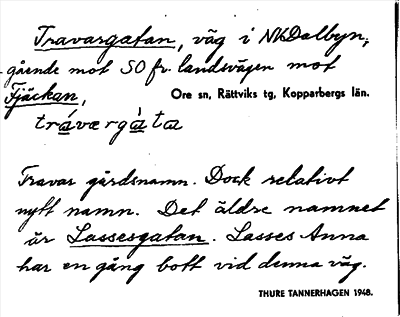 Travargatan, väg i NV Dalbyn,
gående mot SO fr. landsvägen mot
Fjäckan,
Ore sn, Rättviks tg, Kopparbergs län.
tráværgàta
Travar gårdsnamn. Dock relativt
nytt namn. Det äldre namnet
är Lassesgatan. Lasses Anna
har en gång bott vid denna väg.
THURE TANNERHAGEN 1948.